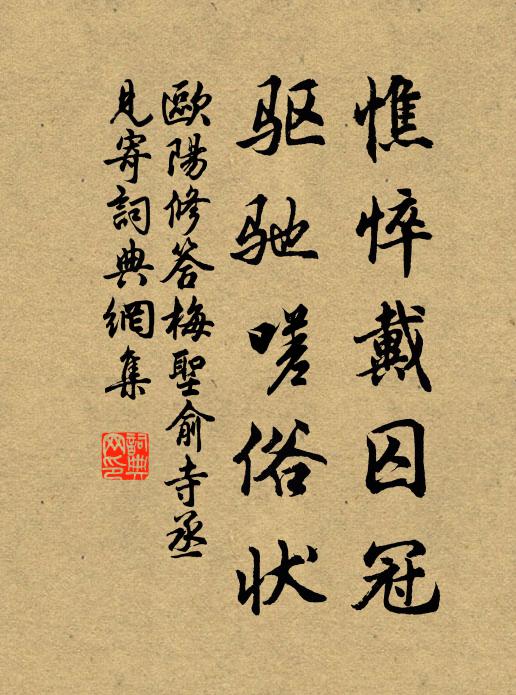 憔悴戴囚冠
驱驰嗟俗状
歐陽修答梅聖俞寺丞
見寄詞典網集
詞典網印